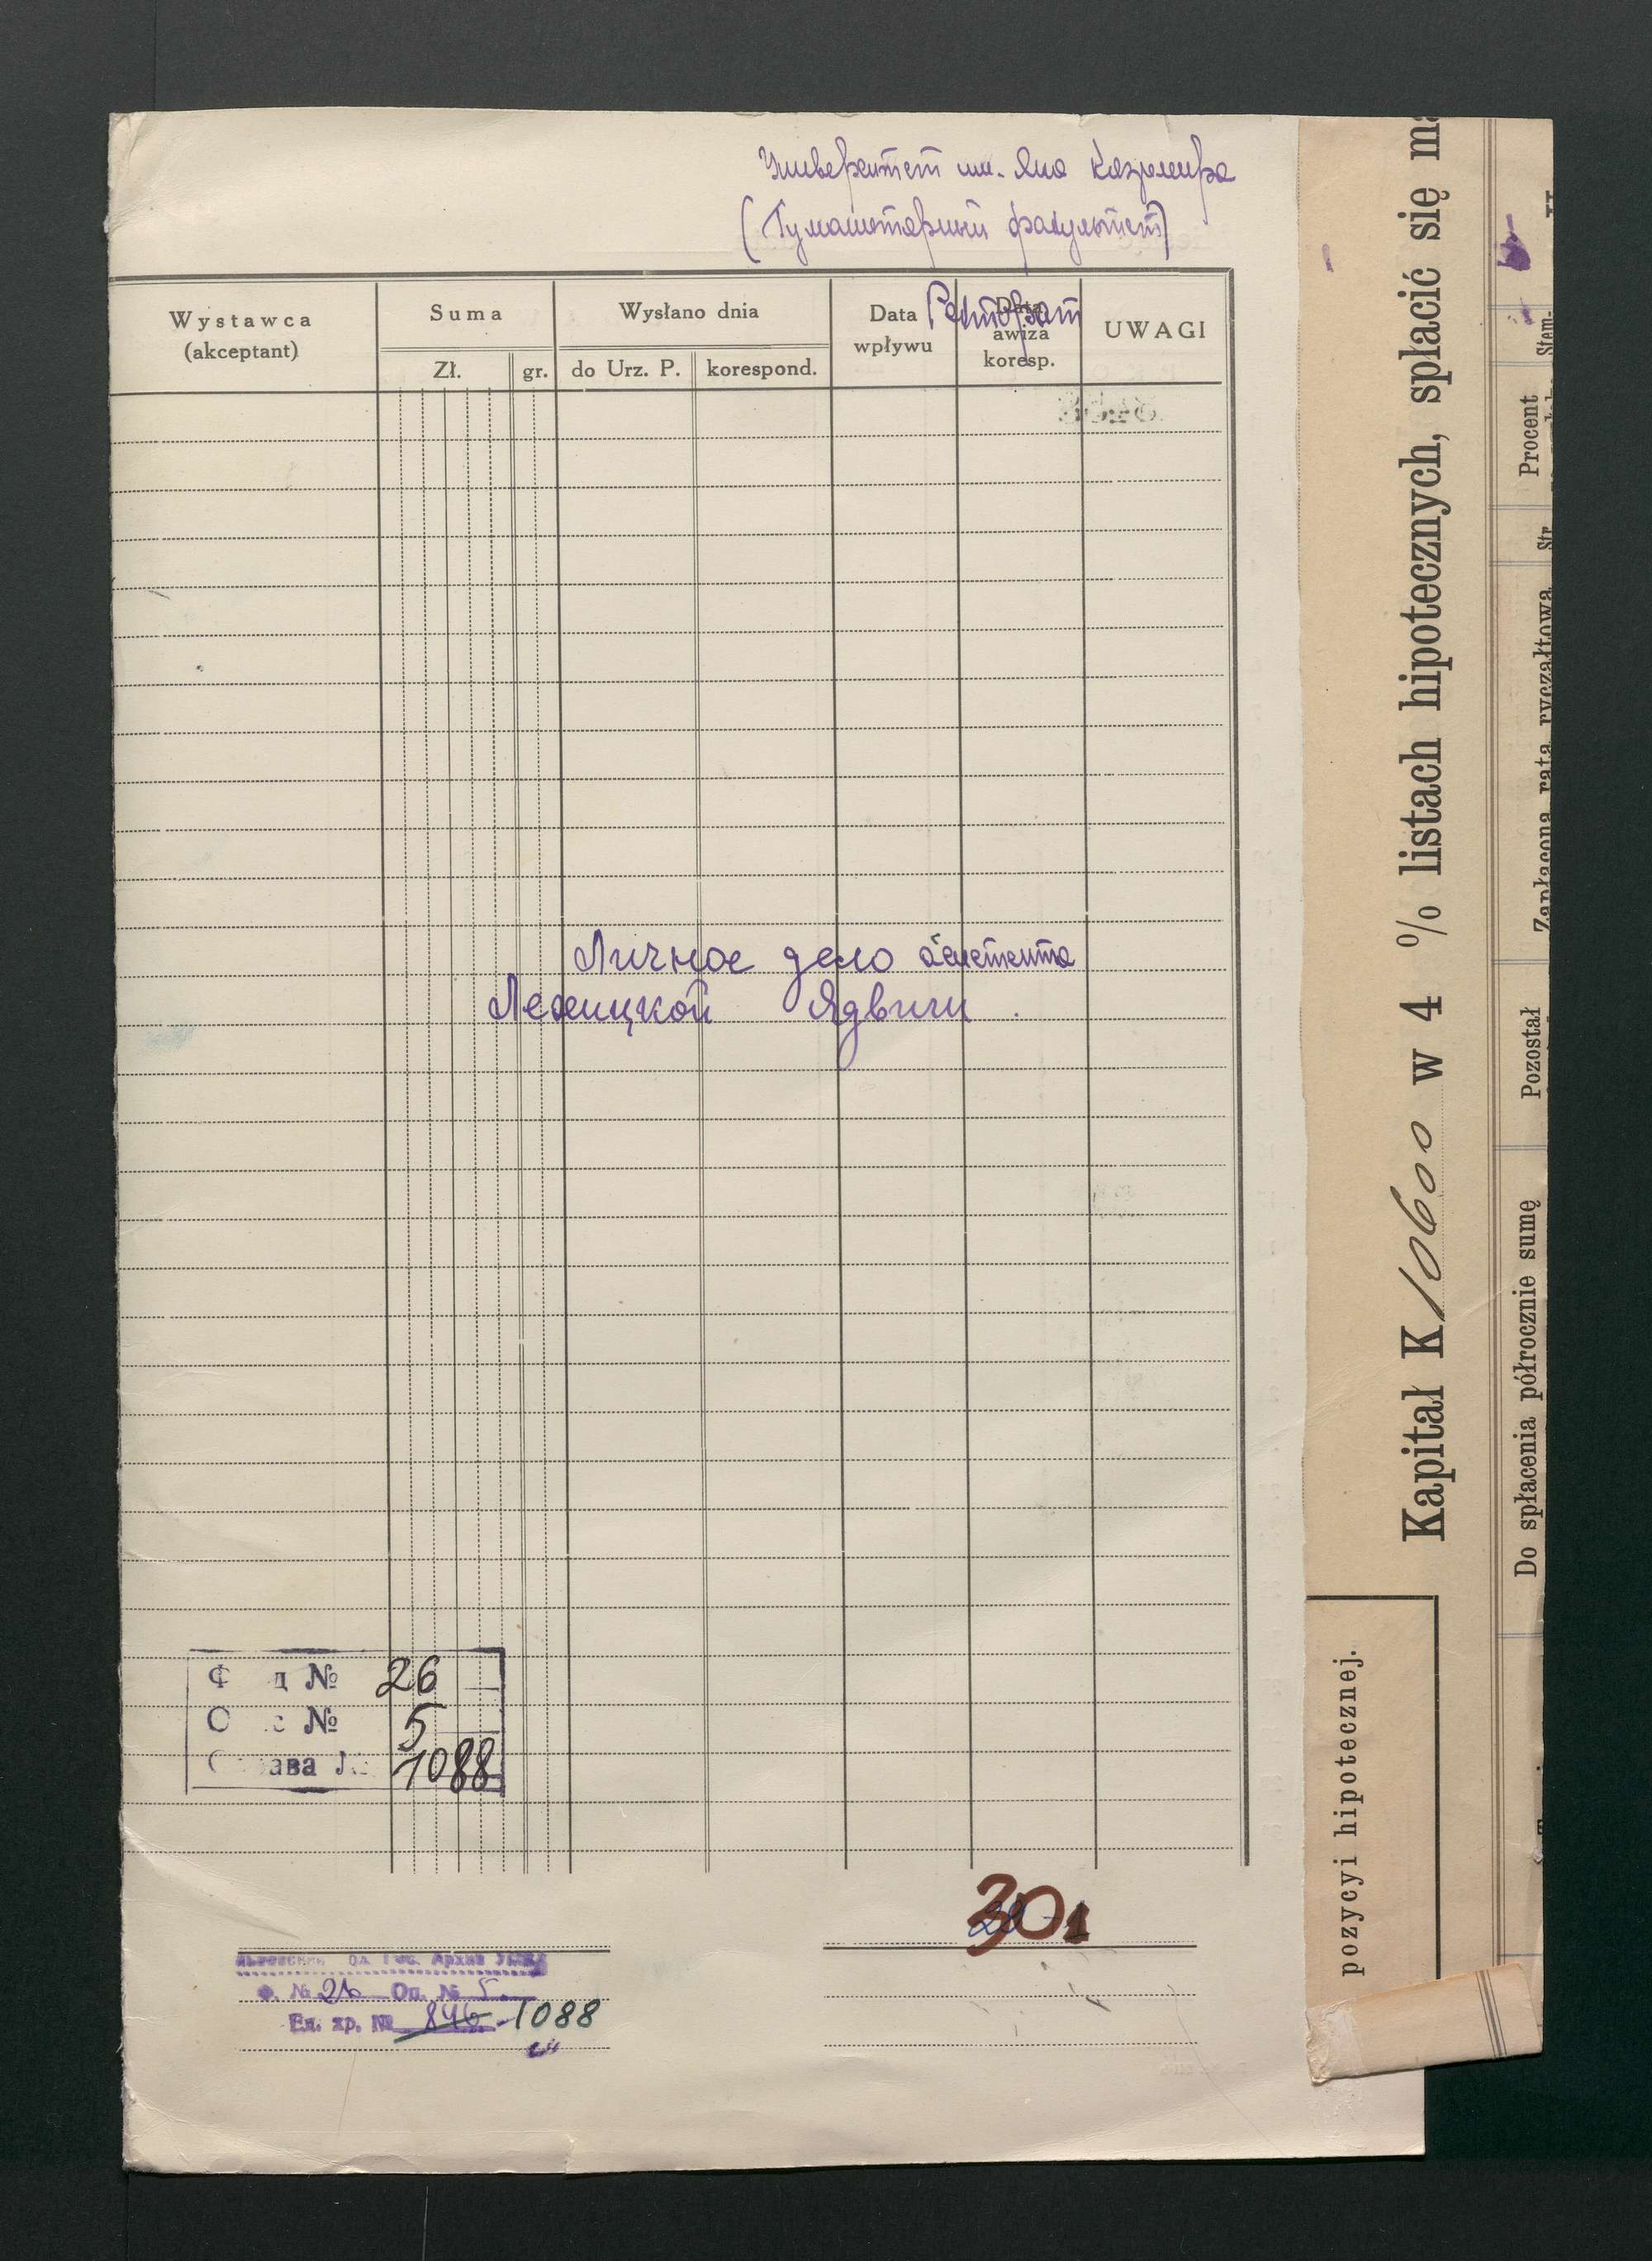 Университет им. Яна Казимира
(Гуманитарный факультет)
Ректорат
Wystawca
(akceptant)
Suma
Zł. gr.
Wysłano dnia
do Urz. P. korespond.
Data
wpływu
Data
awiza
koresp.
UWAGI
Личное дело ассистента
Лежицкой Ядвиги.
№ 26
№ 5
1088
301
Гос. Архив
Ф. № 26 Оп. № 5
Ед. хр. № 846 1088
Kapitał K 10600 w 4 % listach hipotecznych, spłacić się
pozycyi hipotecznej.
Do spłacenia półrocznie sumę
Pozostał
Zapłacona rata ryczałtowa
Str
Procent
Stem-